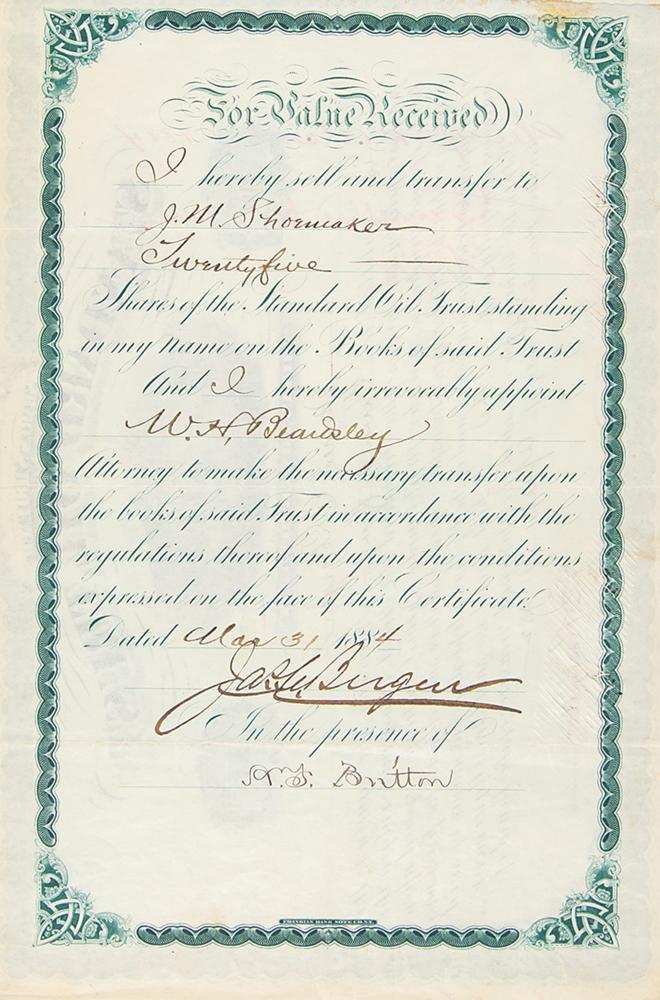 For Value Received
I hereby sell and transfer to
J. M. Shoemaker
Twenty five
Shares of the Standard Oil Trust standing
in my name on the Books of said Trust
And I hereby irrevocably appoint
W. H. Beardsley
Attorney to make the necessary transfer upon
the books of said Trust in accordance with the
regulations thereof and upon the conditions
expressed on the face of this Certificate.
Dated Mar 31 1884
In the presence of
Britton
FRANKLIN BANK NOTE CO. N.Y.